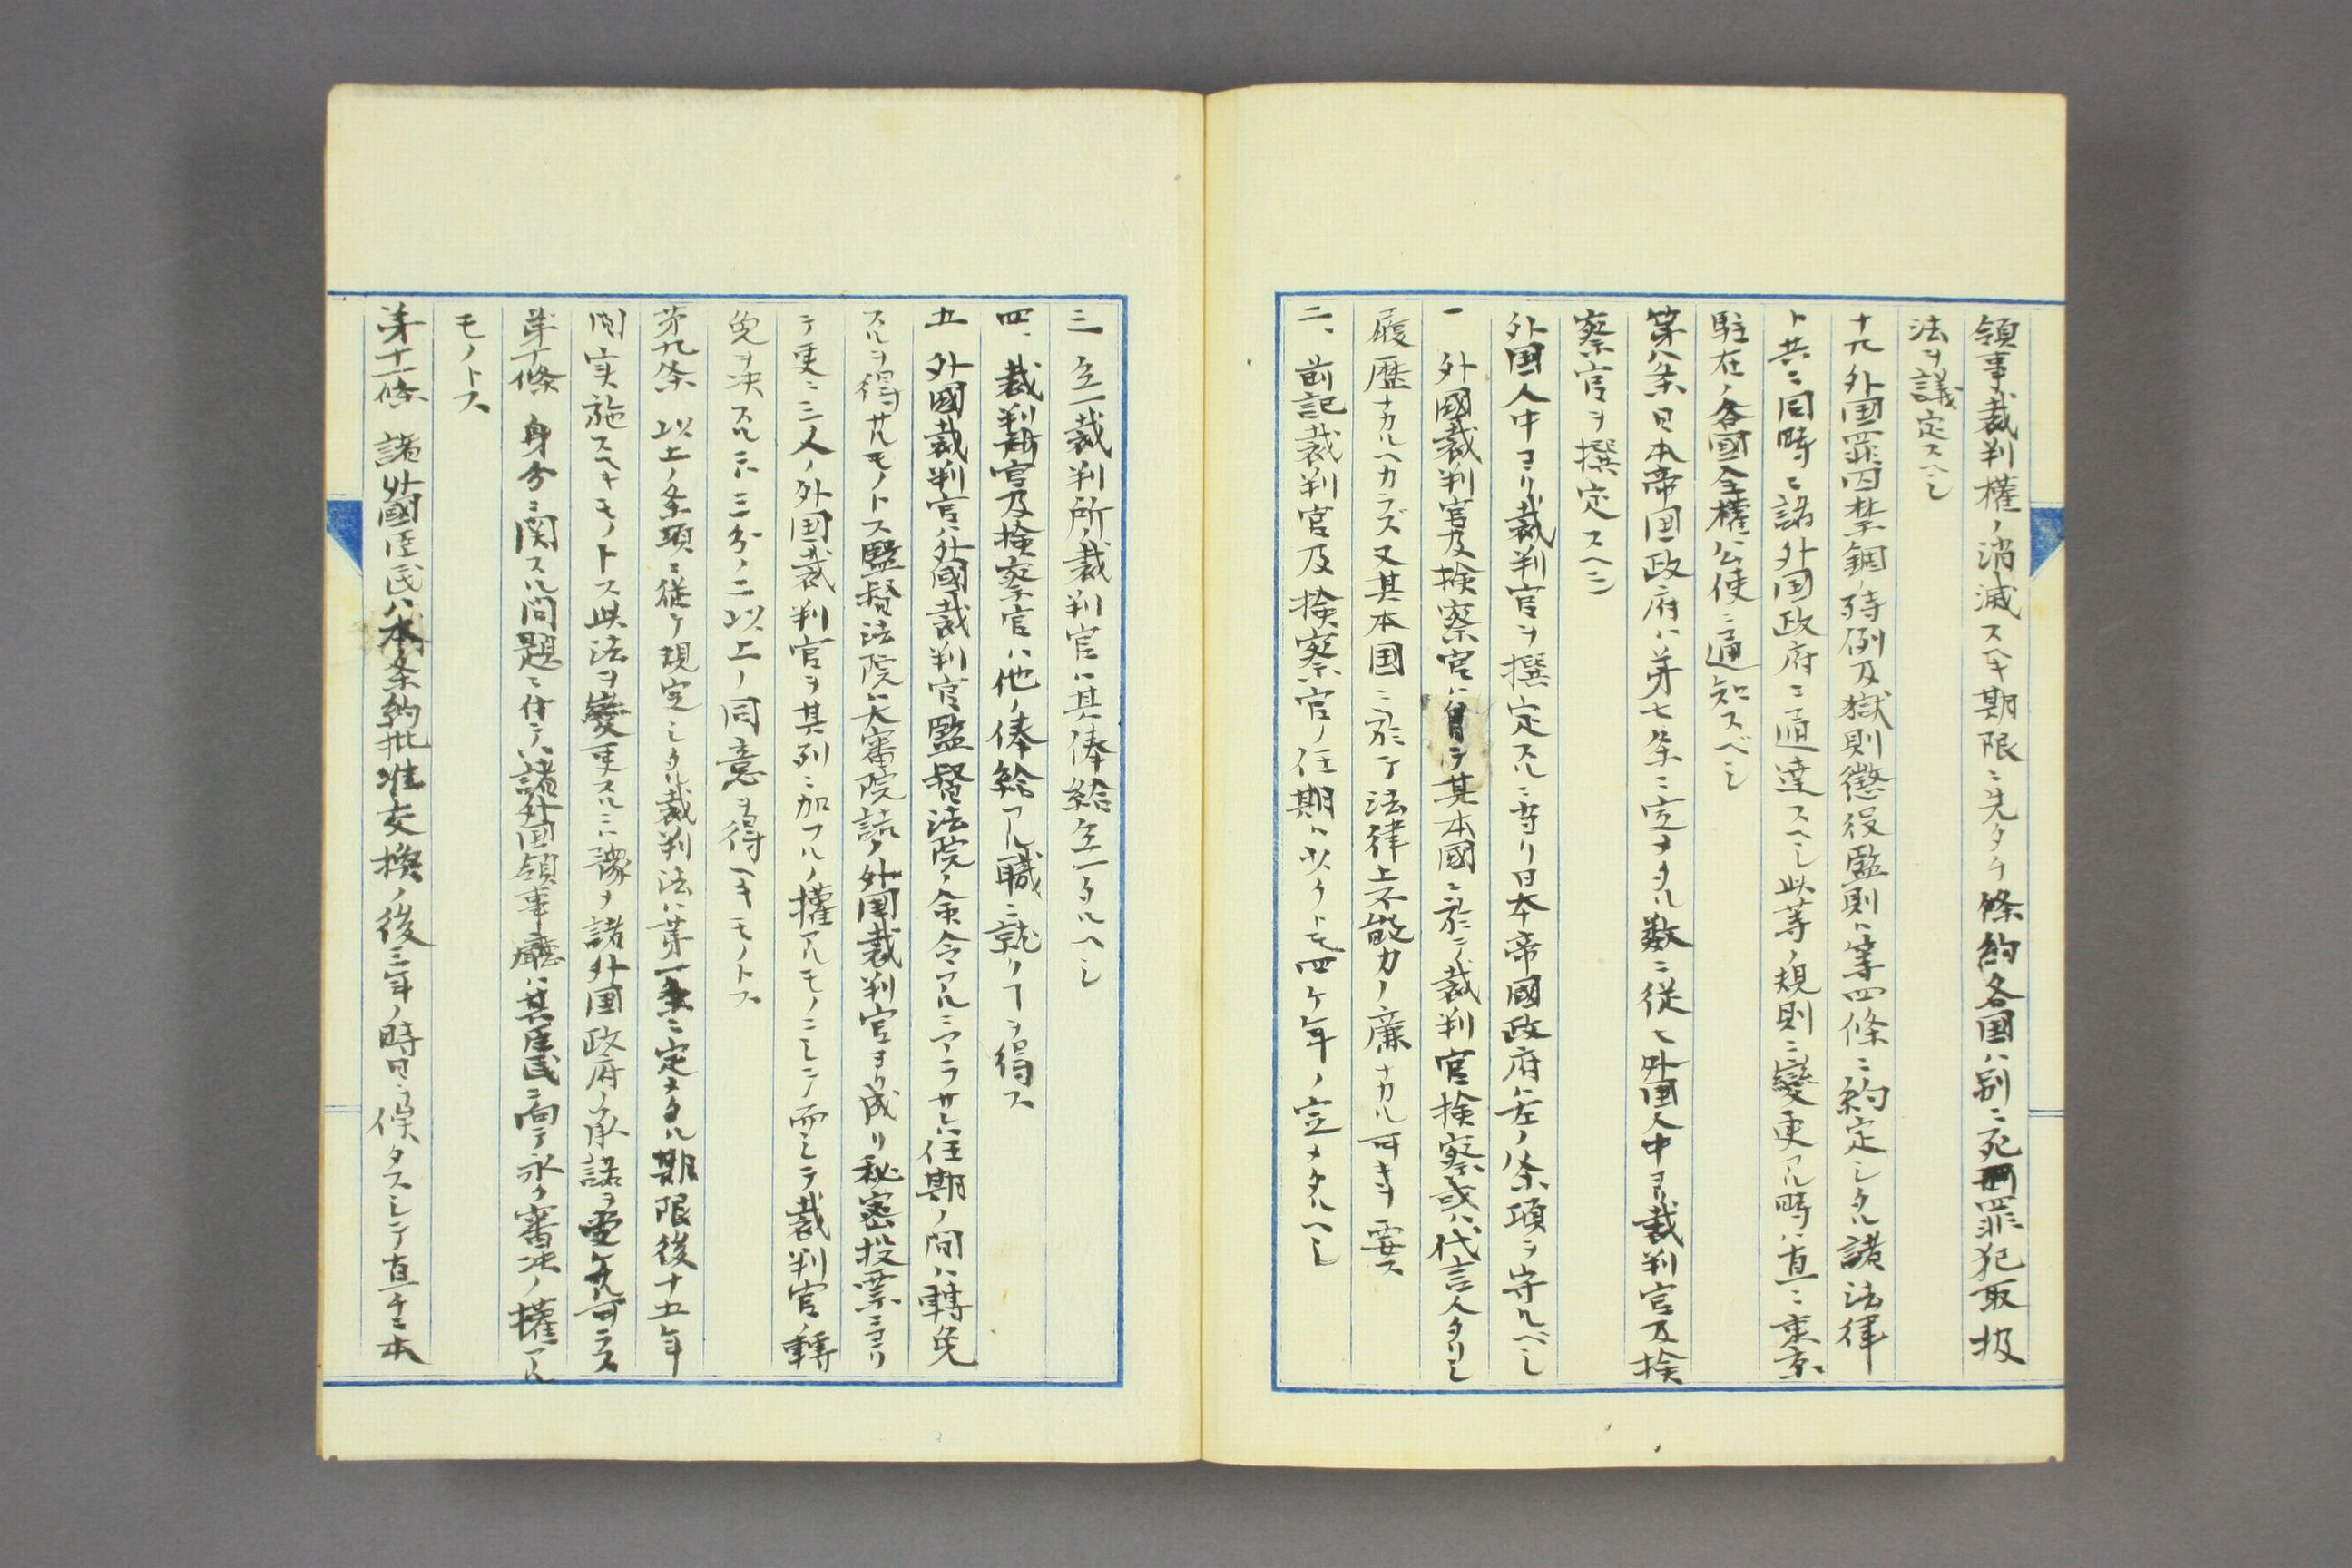 領事裁判權ノ消滅スヘキ期限ニ先タチ條約各国ハ別ニ死刑罪犯取扱
法ヲ議定スヘシ
十九 外国罪囚禁錮ノ特例及獄則懲役監則ハ等四條ニ約定シタル諸法律
ト共ニ同時ニ諸外国政府ニ通達スヘシ此等ノ規則ニ變更アル時ハ直ニ東京
駐在ノ各國全權公使ニ通知スベシ
第八条 日本帝国政府ハ第七条ニ定メタル数ニ従ヒ外国人中ヨリ裁判官及検
察官ヲ撰定スヘシ
外国人中ヨリ裁判官ヲ撰定スルニ当リ日本帝國政府ハ左ノ条項ヲ守ルベシ
一 外國裁判官及検察官ハ曽テ其本國ニ於テ裁判官検察或ハ代言人タリシ
履歴ナカルヘカラズ又其本国ニ於テ法律上不能力ノ廉ナカル可キヲ要ス
二、前記裁判官及検察官ノ任期ハ少クトモ四ケ年ノ定メタルヘシ
三 仝一裁判所ノ裁判官ハ其俸給仝一タルヘシ
四、裁判官及検察官ハ他ノ俸給アル職ニ就クヿヲ得ス
五 外國裁判官ハ外國裁判官監督法院ノ命令アルニアラサレハ任期ノ間ハ轉免
スルヲ得サルモノトス監督法院ハ大審院詰ノ外国裁判官ヨリ成リ秘密投票ニヨリ
テ更ニ三人ノ外国裁判官ヲ其列ニ加フルノ權アルモノニシテ而シテ裁判官ノ轉
免ヲ决スルニハ三分ノ二以上ノ同意ヲ得ヘキモノトス
第九条 以上ノ条項ニ從ケ規定シタル裁判法ハ第一条ニ定メタル期限後十五年
間実施スヘキモノトス此法ヲ變更スルニハ豫メ諸外国政府ノ承諾ヲ受ケサル可ラス
第十條 身分ニ関スル問題ニ付テハ諸外国領事廳ハ其臣民ニ向テ永ク審决ノ權アル
モノトス
第十一條 諸外國臣民ハ本条約批准交換ノ後三年ノ時日ヲ俟タスシテ直チニ本